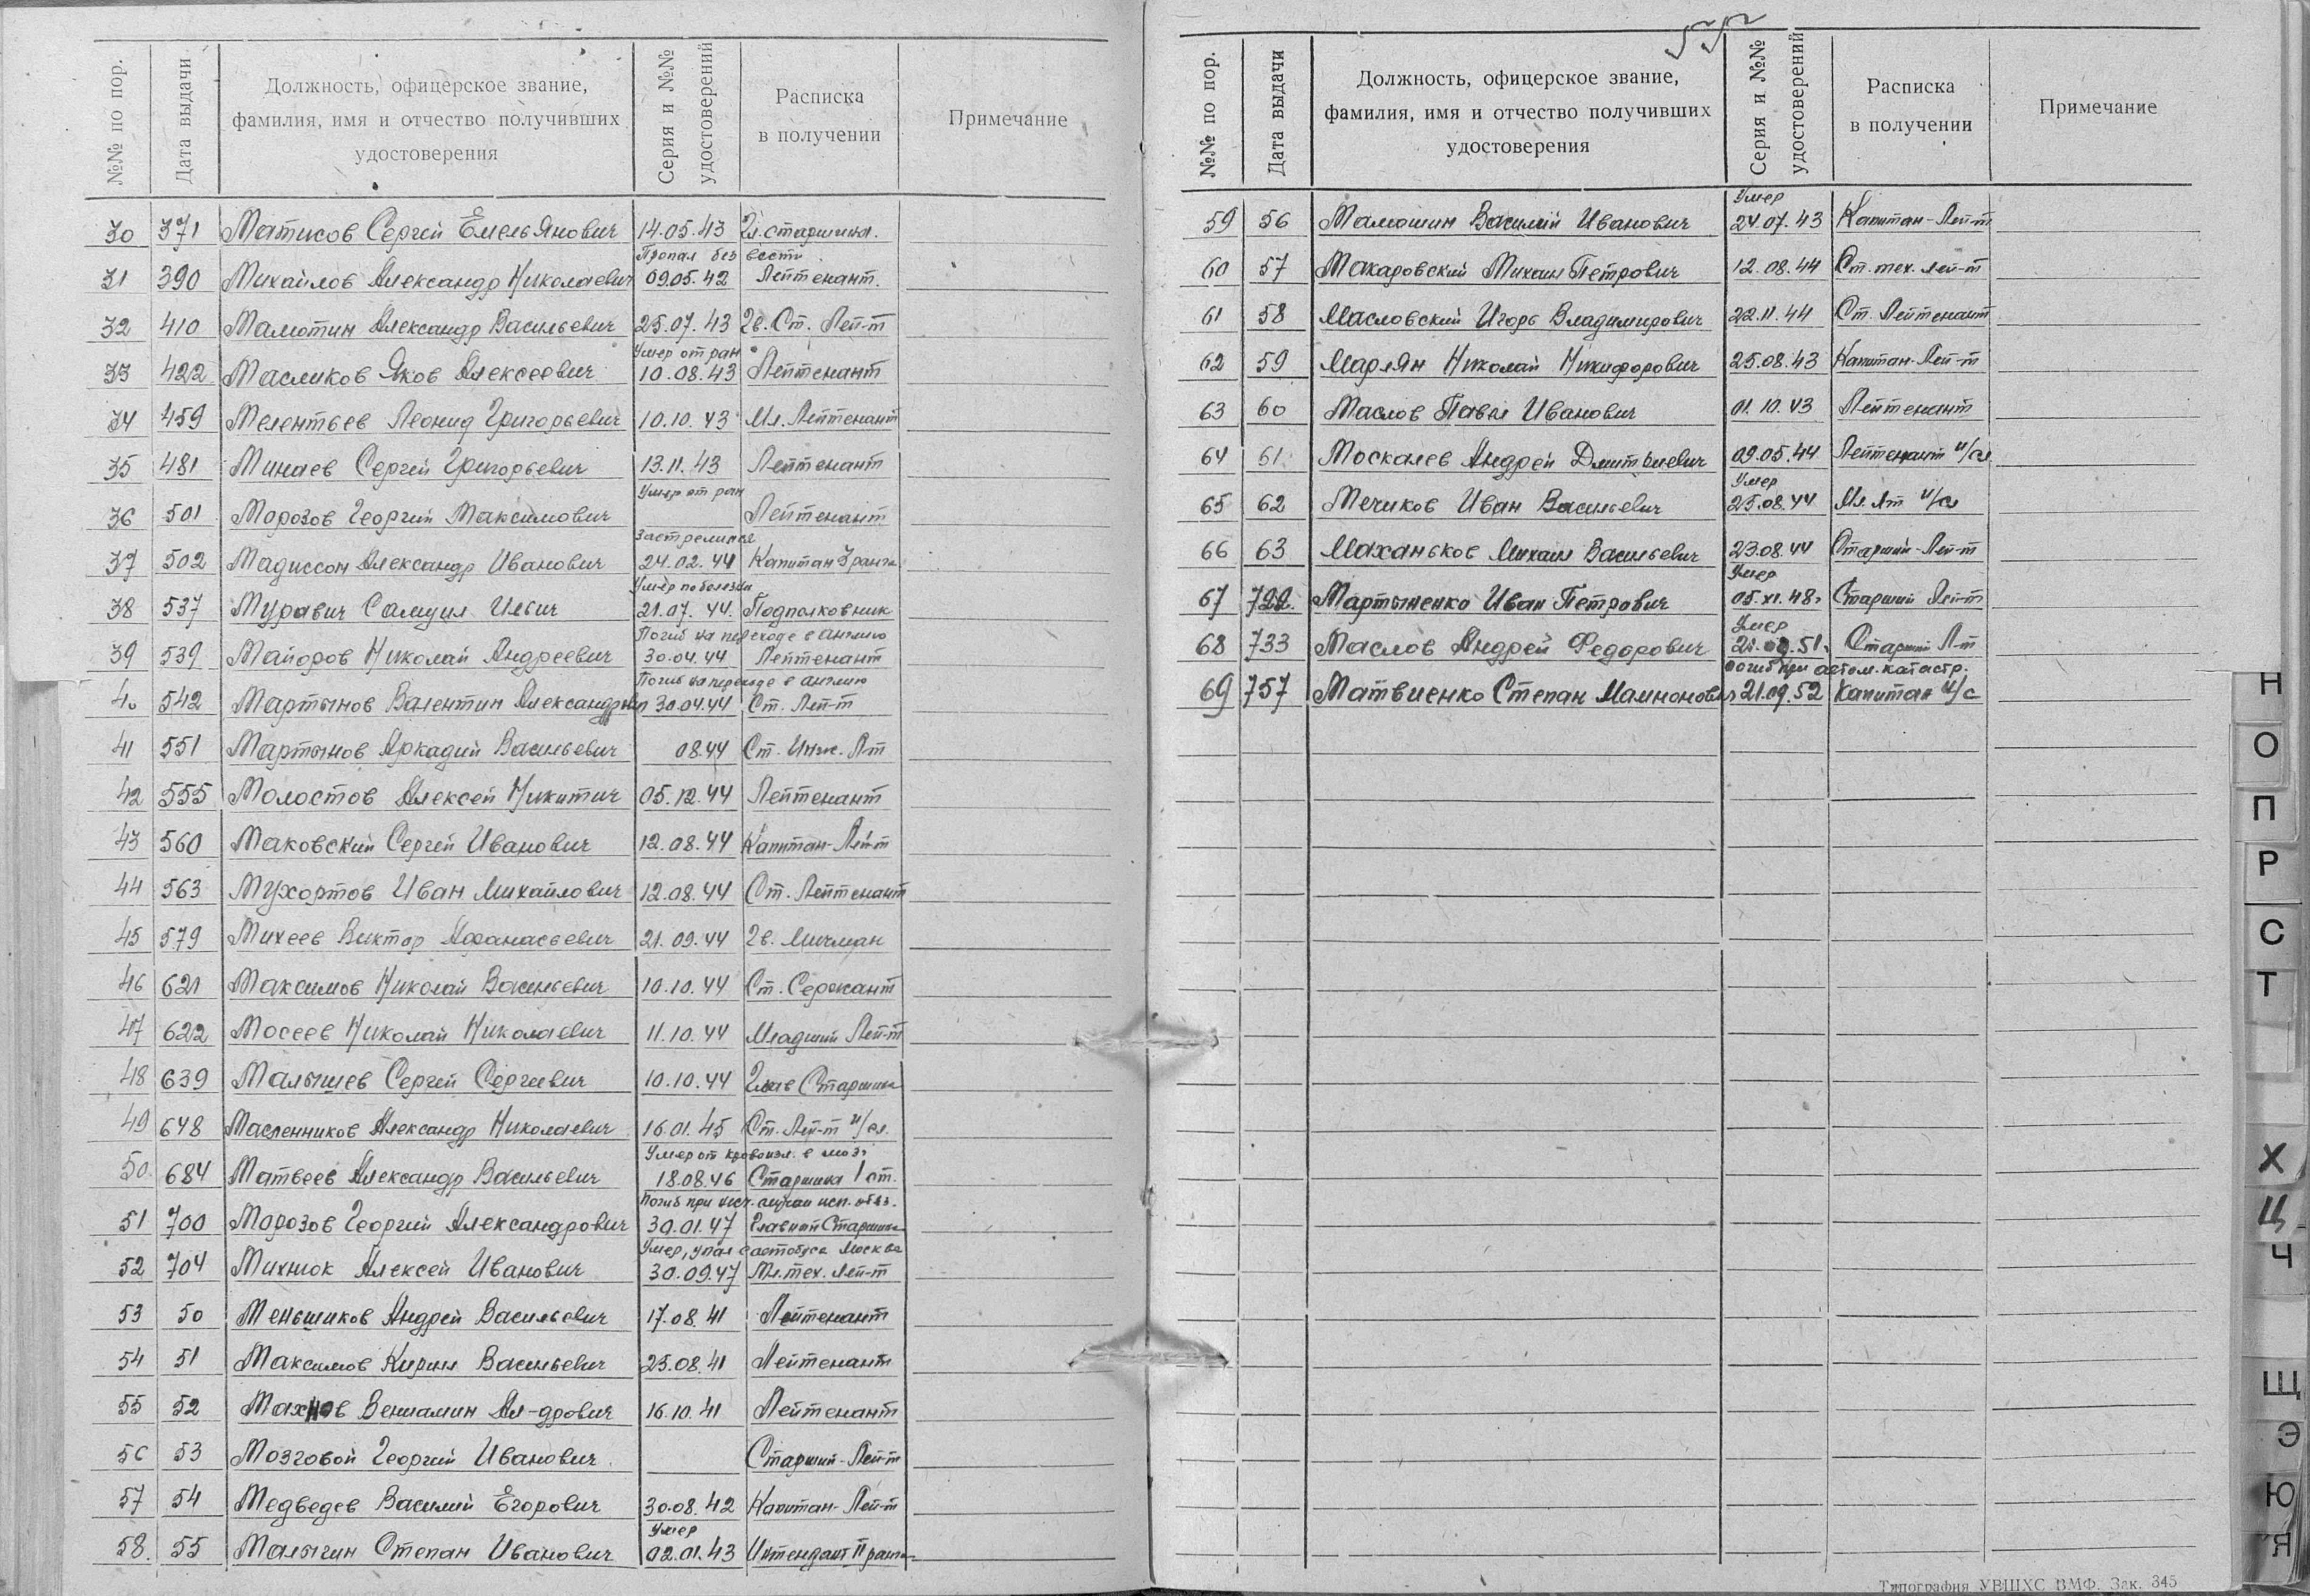 №№ по пор. Дата выдачи Должность, офицерское звание, фамилия, имя и отчество получивших удостоверения Серия и №№ удостоверений Расписка в получении Примечание
30 371 Матисов Сергей Емельянович 14.05.43 Гл. старшина.
Пропал без вести
31 390 Михайлов Александр Николаевич 09.05.42 Лейтенант.
32 410 Малютин Александр Васильевич 25.07.43 Гв. Ст. Лей-т
Умер от ран
33 422 Масликов Яков Алексеевич 10.08.43 Лейтенант
34 459 Мелентьев Леонид Григорьевич 10.10.43 Мл. Лейтенант
35 481 Минаев Сергей Григорьевич 13.11.43 Лейтенант
Умер от ран
36 501 Морозов Георгий Максимович Лейтенант
Застрелился
37 502 Мадиссон Александр Иванович 24.02.44 Капитан 3 ранга
Умер по болезни
38 537 Муравич Самуил Ильич 21.07.44. Подполковник
Погиб на переходе в Англию
39 539 Майоров Николай Андреевич 30.04.44 Лейтенант
Погиб на переходе в Англию
40 542 Мартынов Валентин Александрович 30.04.44 Ст. Лей-т
41 551 Мартынов Аркадий Васильевич 08.44 Ст. Инж. Л-т
42 555 Молостов Алексей Никитич 05.12.44 Лейтенант
43 560 Маковский Сергей Иванович 12.08.44 Капитан-Лей-т
44 563 Мухортов Иван Михайлович 12.08.44 Ст. Лейтенант
45 579 Михеев Виктор Афанасьевич 21.09.44 Гв. Мичман
46 621 Максимов Николай Васильевич 10.10.44 Ст. Сержант
47 622 Мосеев Николай Николаевич 11.10.44 Младший Лей-т
48 639 Малышев Сергей Сергеевич 10.10.44 Глав Старшина
49 648 Масленников Александр Николаевич 16.01.45 Ст. Лей-т и/сл.
Умер от кровоизл. в мозг
50. 684 Матвеев Александр Васильевич 18.08.46 Старшина 1 ст.
Погиб при несч. случаи исп. обяз.
51 700 Морозов Георгий Александрович 30.01.47 Главный Старшина
Умер, упал с автобуса Москва
52 704 Михнюк Алексей Иванович 30.09.47 Мл. тех. лей-т
53 50 Меньшиков Андрей Васильевич 17.08.41 Лейтенант
54 51 Максимов Кирилл Васильевич 25.08.41 Лейтенант
55 52 Махнов Вениамин Ал-дрович 16.10.41 Лейтенант
56 53 Мозговой Георгий Иванович. Старший-Лей-т
57 54 Медведев Василий Егорович 30.08.42 Капитан-Лей-т
Умер
58. 55 Малыгин Степан Иванович 02.01.43 Интендант II ранга
№№ по пор. Дата выдачи Должность, офицерское звание, фамилия, имя и отчество получивших удостоверения Серия и №№ удостоверений Расписка в получении Примечание
Умер
59 56 Мамошин Василий Иванович 24.07.43 Капитан-Лей-т
60 57 Макаровский Михаил Петрович 12.08.44 Ст. тех. лей-т
61 58 Масловский Игорь Владимирович 22.11.44 Ст. Лейтенант
62 59 Марлян Николай Никифорович 25.08.43 Капитан-Лей-т
63 60 Маслов Павел Иванович 01.10.43 Лейтенант
64 61 Москалев Андрей Дмитриевич 09.05.44 Лейтенант и/сл
Умер
65 62 Мечиков Иван Васильевич 25.08.44 Мл. Л-т и/сл
66 63 Маханьков Михаил Васильевич 23.08.44 Старший-Лей-т
Умер
67 722. Мартыненко Иван Петрович 05.XI.48г Старший Лей-т
Умер
68 733 Маслов Андрей Федорович .51г Старший Л-т
погиб при автом. катастр.
69 757 Матвиенко Степан 21.09.52 Капитан и/с
Н
О
П
Р
С
Т
Х
Ц
Ч
Щ
Э
Ю
Я
Типография УВШХС ВМФ. Зак. 345